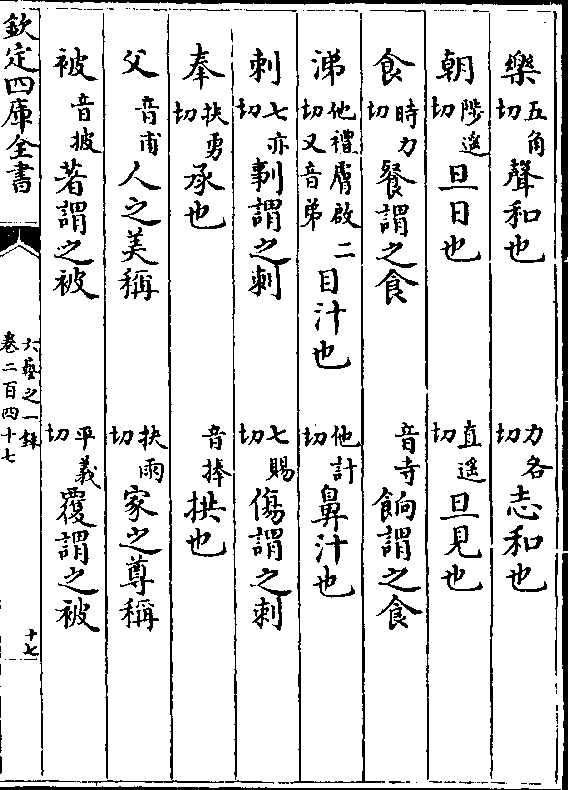 樂五角切聲和也　力各切志和也
朝陟遥切旦日也　直遥切旦見也
食時力切餐謂之食　音寺餉謂之食
涕他禮切又音弟膚啟二目汁也　他計切鼻汁也
刺七亦切剸謂之刺　七賜切傷謂之刺
奉扶勇切承也　音捧拱也
父音甫人之美稱　扶雨切家之尊稱
被音披著謂之被　平義切覆謂之被
欽定四庫全書
六藝之一錄
卷二百四十七
十七